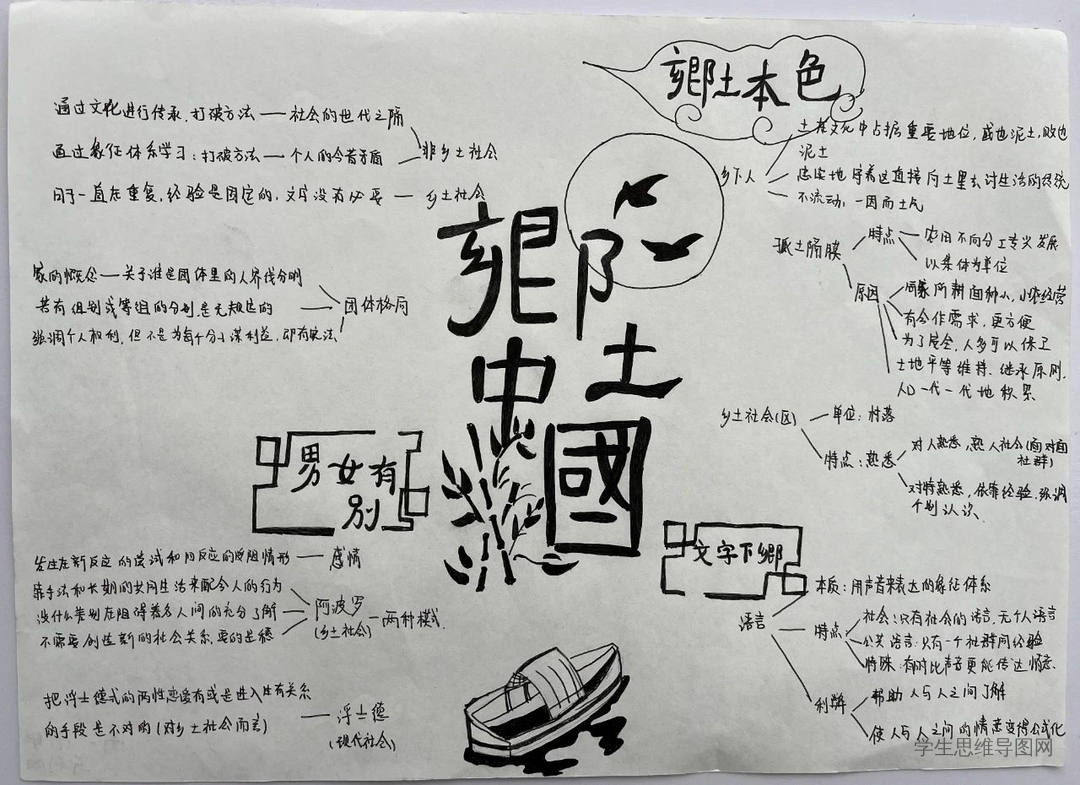 鄉土中國
鄉土本色
乡下人
土在文化中占据重要地位，成也泥土，败也
泥土
忠实地守着这直接向土里去讨生活的传统
不流动，一因而土气
孤土隔膜
特点
农田不向分工专业发展
以集体为单位
原因
所耕面积小，小农经营
有合作需求，更方便
为了安全，人多可以保卫
土地平等继承原则，
人口一代一代地积累
乡土社会(区)
单位：村落
特点：熟悉
对人熟悉，熟人社会(面对面
社群)
对物熟悉，依靠经验，强调
个别认识。
文字下鄉
语言
本质：用声音来表达的象征体系
特点
社会：只有社会的语言，无个人语言
公共语言：只有一个社群间经验
特殊：有时比声音更能传达情意
利弊
帮助人与人之间了解
使人与人之间的情意变得公式化
通过文化进行传承，打破方法——社会的世代之隔
通过象征体系学习：打破方法——个人的今昔矛盾
非乡土社会
由于一直在重复，经验是固定的，文字没有必要——乡土社会
家的概念——关于谁是团体里的人界线分明
共有组别或等级的分别，是先规定的
强调个人权利，但不是为每个分子谋利益，即有宪法
团体格局
男女有
别
发生在新反应的尝试和旧反应的受阻情形——感情
靠手法和长期的共同生活来配合人的行为
没什么差别在阻碍着各人间的充分了解
不需要创造新的社会关系，要的是稳
阿波罗
(乡土社会)
两种模式
把浮士德式的两性恋爱看成是进入生育关系
的手段是不对的(对乡土社会而言)
浮士德
(现代社会)
学生思维导图网